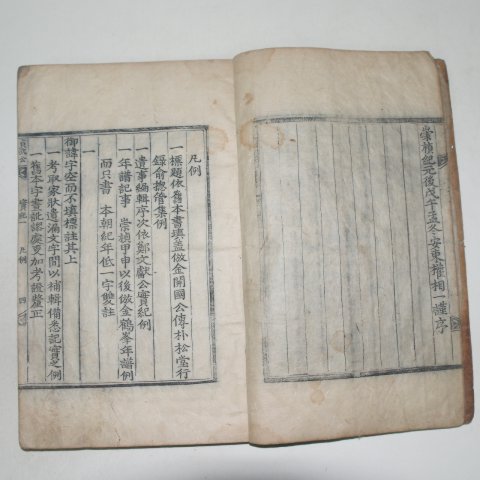 崇禎紀元後戊午孟冬安東權相一謹序
凡例
一標題依舊本書填盖倣金開國公傳朴松堂行
錄俞揔管集例
一遺事編輯序次依鄭文獻公實紀例
一年譜記事 崇禎甲申以後倣金鶴峯年譜例
而只書 本朝紀年低一字雙註
一
御諱字空而不填標註其上
一考取家狀遺漏文字間以補輯備悉記實之例
一舊本字畫訛謬處更加考證釐正
實紀 凡例 四